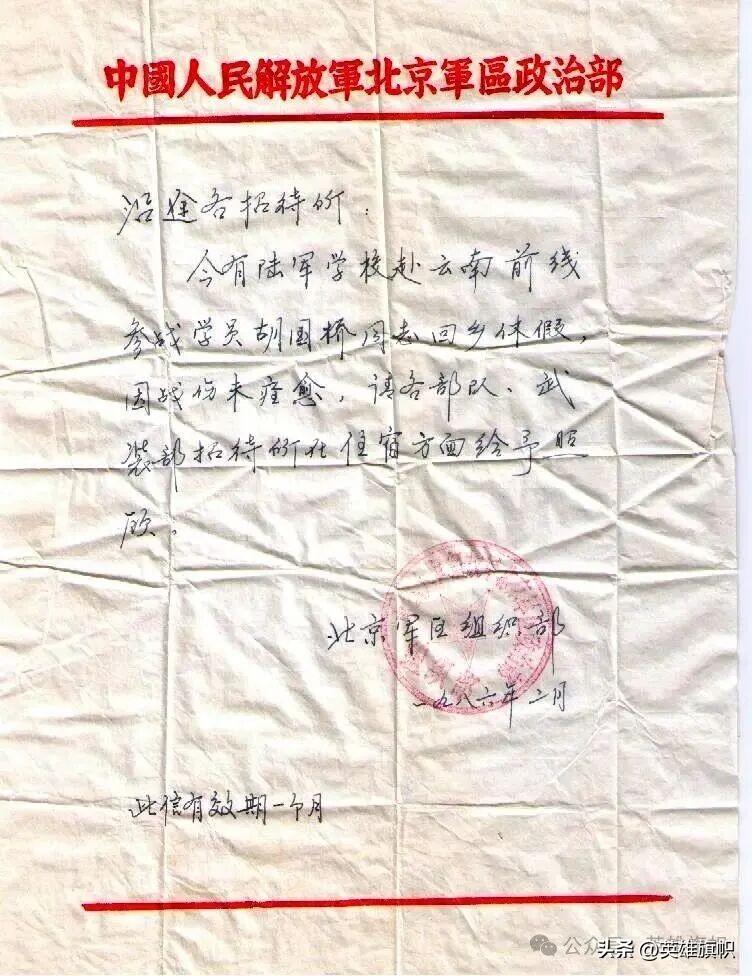 中國人民解放軍北京軍區政治部
沿途各招待所：
今有陆军学校赴云南前线
参战学员胡国桥同志回乡休假，
因战伤未痊愈，请各部队、武
装部招待所在住宿方面给予照
顾。
北京军区组织部
一九八六年二月
此信有效期一个月
公众号
头条 @英雄旗帜